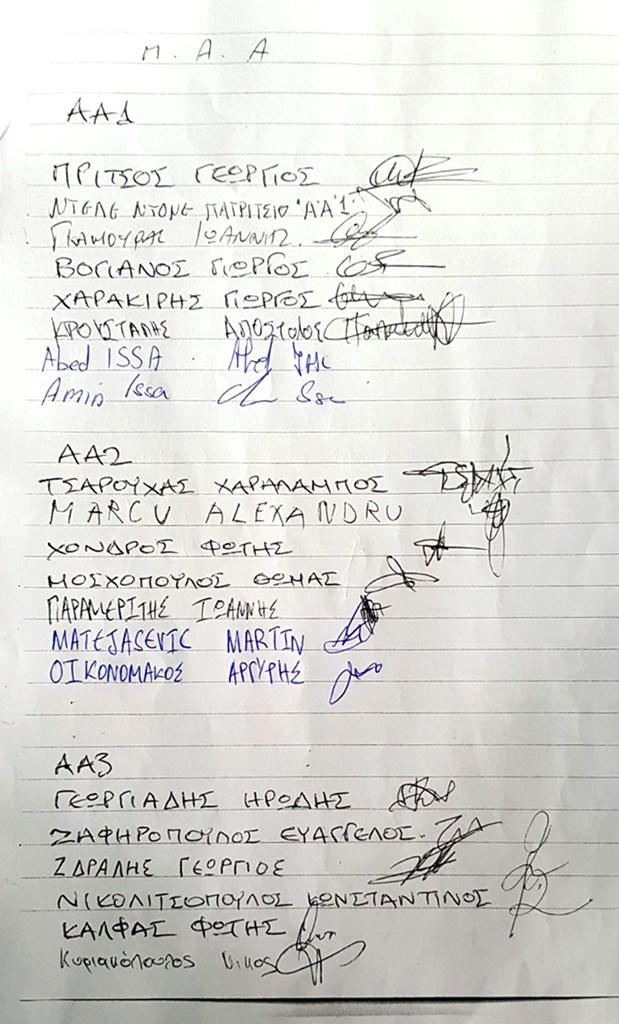 Μ. Α. Α
ΑΑ1
ΠΡΙΤΣΟΣ ΓΕΩΡΓΙΟΣ
ΝΤΕΛΕ ΝΤΟΝΕ ΠΑΤΡΙΤΣΙΟ "Α'Α'1"
ΓΚΑΜΟΥΡΑΣ ΙΩΑΝΝΗΣ
ΒΟΓΙΑΝΟΣ ΓΙΩΡΓΟΣ
ΧΑΡΑΚΙΡΗΣ ΓΙΩΡΓΟΣ
ΚΡΟΥΣΤΑΛΗΣ ΑΠΟΣΤΟΛΟΣ
Abed ISSA
Amin Issa
ΑΑ2
ΤΣΑΡΟΥΧΑΣ ΧΑΡΑΛΑΜΠΟΣ
MARCU ALEXANDRU
ΧΟΝΔΡΟΣ ΦΩΤΗΣ
ΜΟΣΧΟΠΟΥΛΟΣ ΘΩΜΑΣ
ΠΑΡΑΜΕΡΙΤΗΣ ΙΩΑΝΝΗΣ
MATEJASEVIC MARTIN
ΟΙΚΟΝΟΜΑΚΟΣ ΑΡΓΥΡΗΣ
ΑΑ3
ΓΕΩΡΓΙΑΔΗΣ ΗΡΩΔΗΣ
ΖΑΦΗΡΟΠΟΥΛΟΣ ΕΥΑΓΓΕΛΟΣ
ΖΔΡΑΛΗΣ ΓΕΩΡΓΙΟΣ
ΝΙΚΟΛΙΤΣΟΠΟΥΛΟΣ ΚΩΝΣΤΑΝΤΙΝΟΣ
ΚΑΛΦΑΣ ΦΩΤΗΣ
Κυριακόπουλος Νίκος